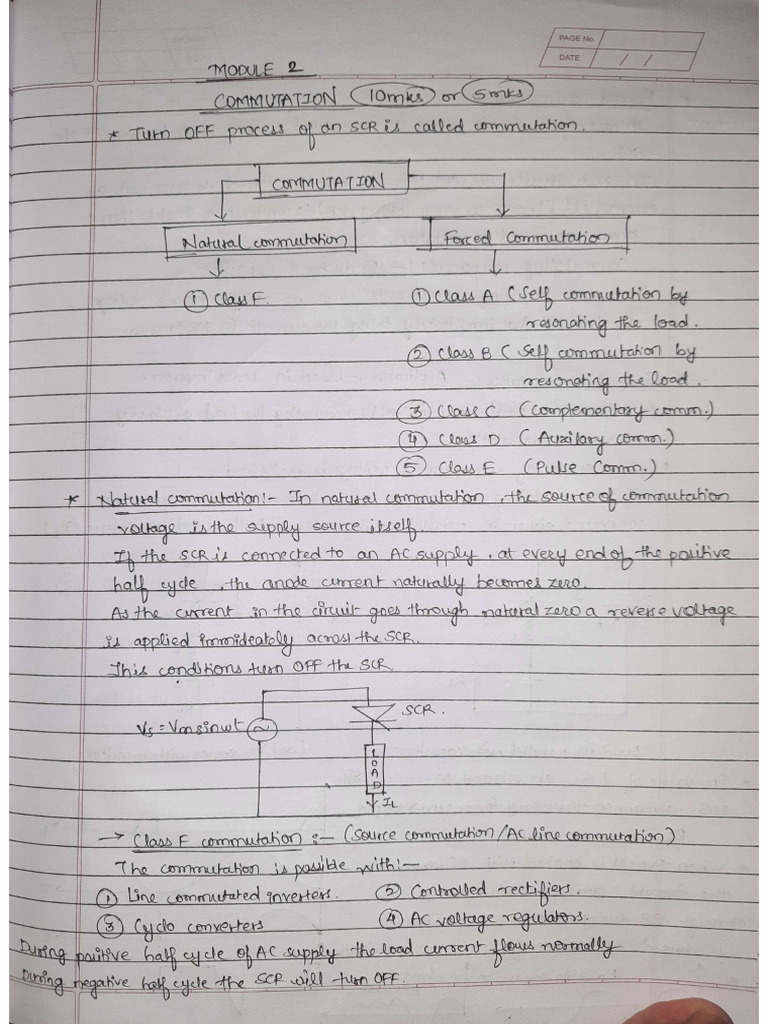 PAGE No.
DATE / /
MODULE 2
COMMUTATION (10mks) or (5mks)
* Turn OFF process of an SCR is called commutation.
COMMUTATION
Natural commutation Forced Commutation
① Class F. ① Class A (Self commutation by
resonating the load.
② Class B (Self commutation by
resonating the load.
③ Class C (Complementary comm.)
④ Class D (Auxilary comm.)
⑤ Class E (Pulse Comm.)
* Natural commutation:- In natural commutation, the source of commutation
voltage is the supply source itself.
If the SCR is connected to an AC supply, at every end of the positive
half cycle, the anode current naturally becomes zero.
As the current in the circuit goes through natural zero a reverse voltage
is applied immideately across the SCR.
This conditions turn OFF the SCR
SCR.
Vs = Vmsinwt
LOAD
IL
→ Class F commutation :- (Source commutation/AC line commutation)
The commutation is possible with:-
① Line commutated inverters. ② Controlled rectifiers.
③ Cyclo converters ④ AC voltage regulators.
During positive half cycle of AC supply the load current flows normally
During negative half cycle the SCR will turn OFF.